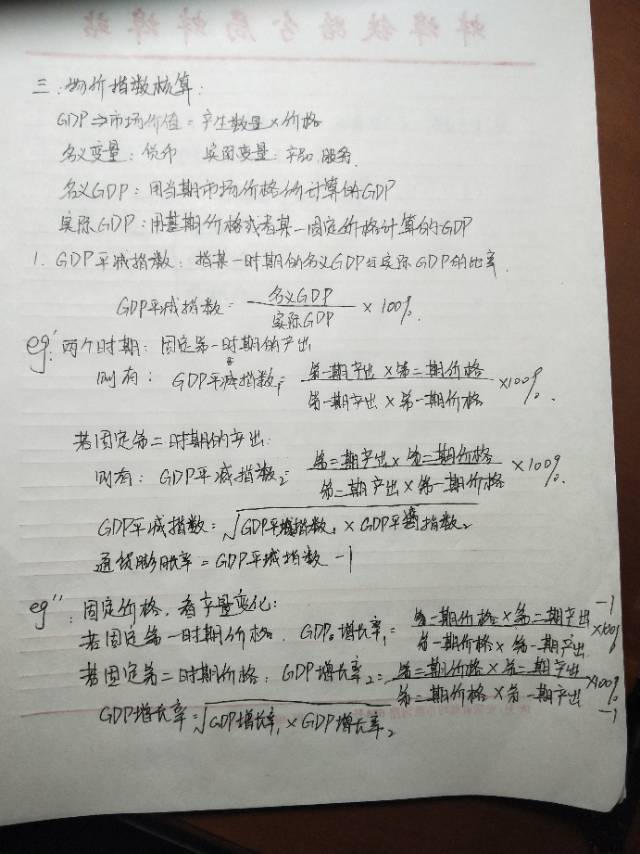 蚌埠铁路分局蚌埠站
三.物价指数核算:
GDP⇒市场价值=产生数量×价格
名义变量:货币 实图变量:产品.服务.
名义GDP:用当期市场价格所计算的GDP
实际GDP:用基期价格或者某一固定价格计算的GDP
1. GDP平减指数:指某一时期的名义GDP与实际GDP的比率.
GDP平减指数=名义GDP/实际GDP × 100%.
eg':两个时期:固定第一时期的产出
则有:GDP平减指数₁=第一期产出×第二期价格/第一期产出×第一期价格 ×100%.
若固定第二时期的产出:
则有:GDP平减指数₂=第二期产出×第二期价格/第二期产出×第一期价格 ×100%.
GDP平减指数=√GDP平减指数₁×GDP平减指数₂
通货膨胀率=GDP平减指数-1
eg'':固定价格,看产量变化:
若固定第一时期价格.GDP增长率₁=第一期价格×第二期产出/第一期价格×第一期产出 ×100% -1
若固定第二时期价格:GDP增长率₂=第二期价格×第二期产出/第二期价格×第一期产出 ×100% -1
GDP增长率=√GDP增长率₁×GDP增长率₂